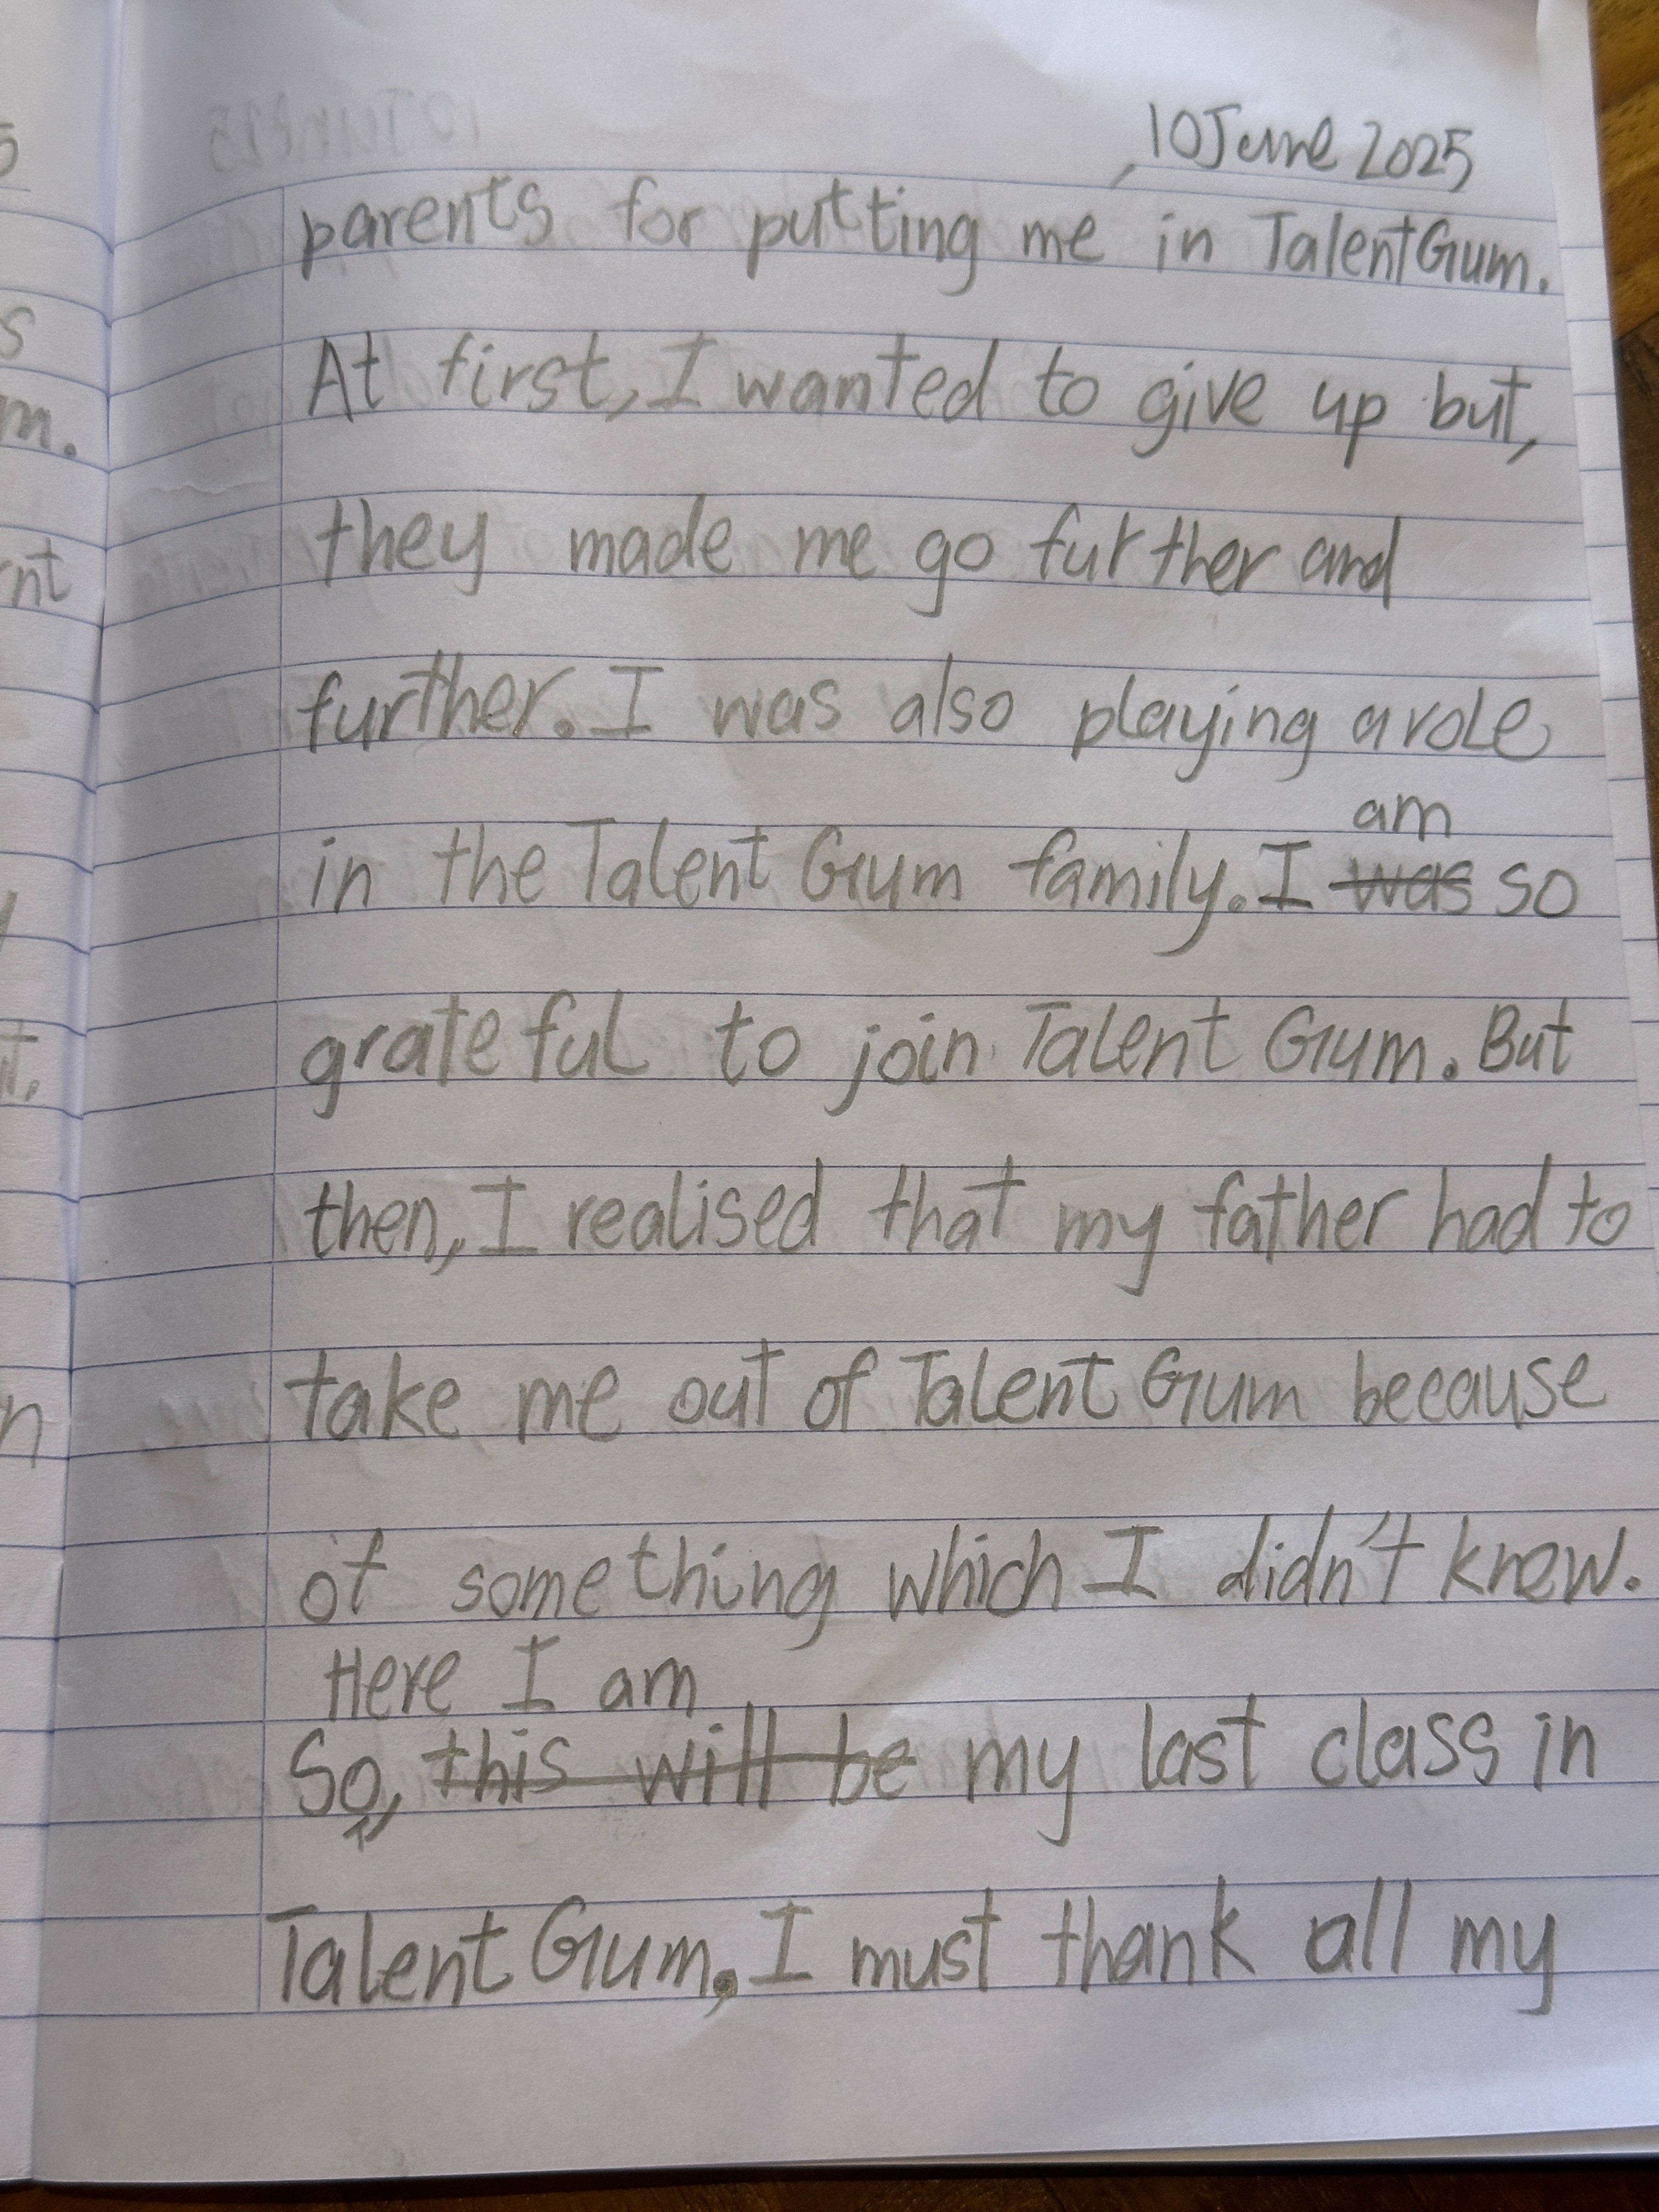 10 June 2025
parents for putting me in TalentGum.
At first, I wanted to give up but,
they made me go further and
further. I was also playing a role
am
in the Talent Gum family. I was so
grateful to join Talent Gum. But
then, I realised that my father had to
take me out of Talent Gum because
of something which I didn't know.
Here I am
So, this will be my last class in
Talent Gum, I must thank all my